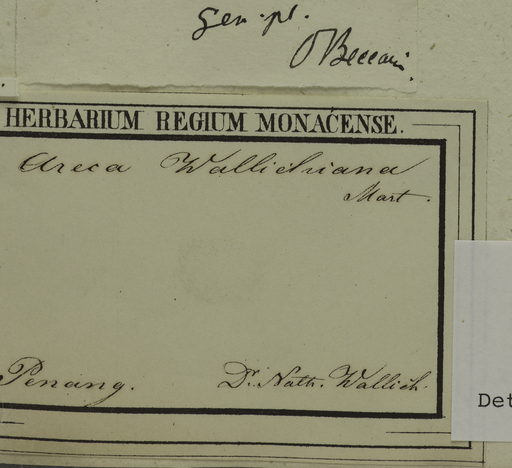 Gen. pl.
O Beccari.
HERBARIUM REGIUM MONACENSE.
Areca Wallichiana
Mart.
Penang.
Dr. Nath. Wallich.
Det